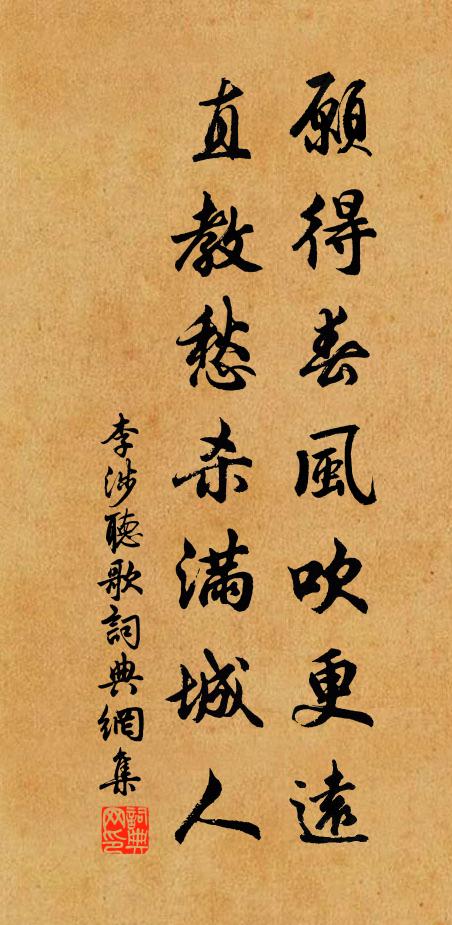 願得春風吹更遠
直教愁殺滿城人
李涉聽歌詞典網集
詞典網印